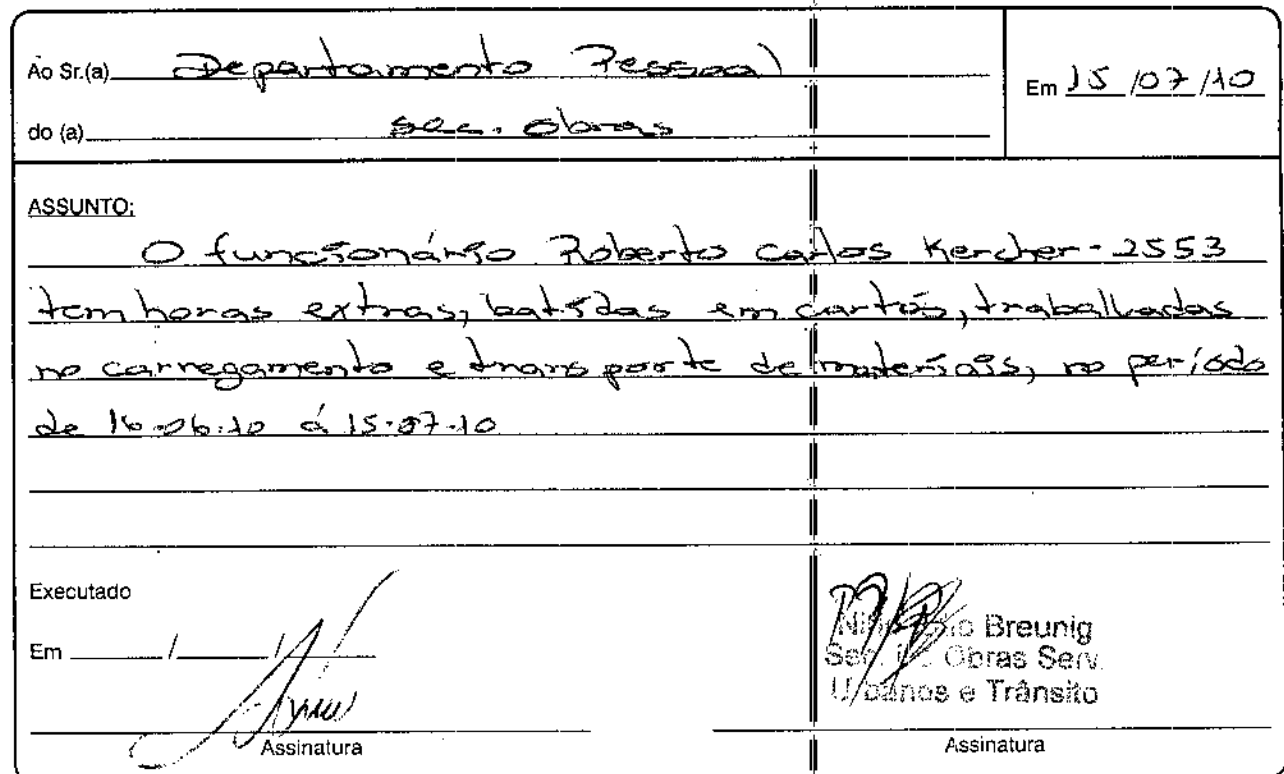 Ao Sr.(a) Departamento Pessoal
Em 15/07/10
do (a) sec. obras
ASSUNTO:
O funcionário Roberto Carlos Kercher - 2553
tem horas extras, batidas em cartão, trabalhadas
no carregamento e transporte de materiais, no período
de 16.06.10 á 15.07.10
Executado
Em / /
Breunig
Sec. de Obras Serv.
Urbanos e Trânsito
Assinatura
Assinatura